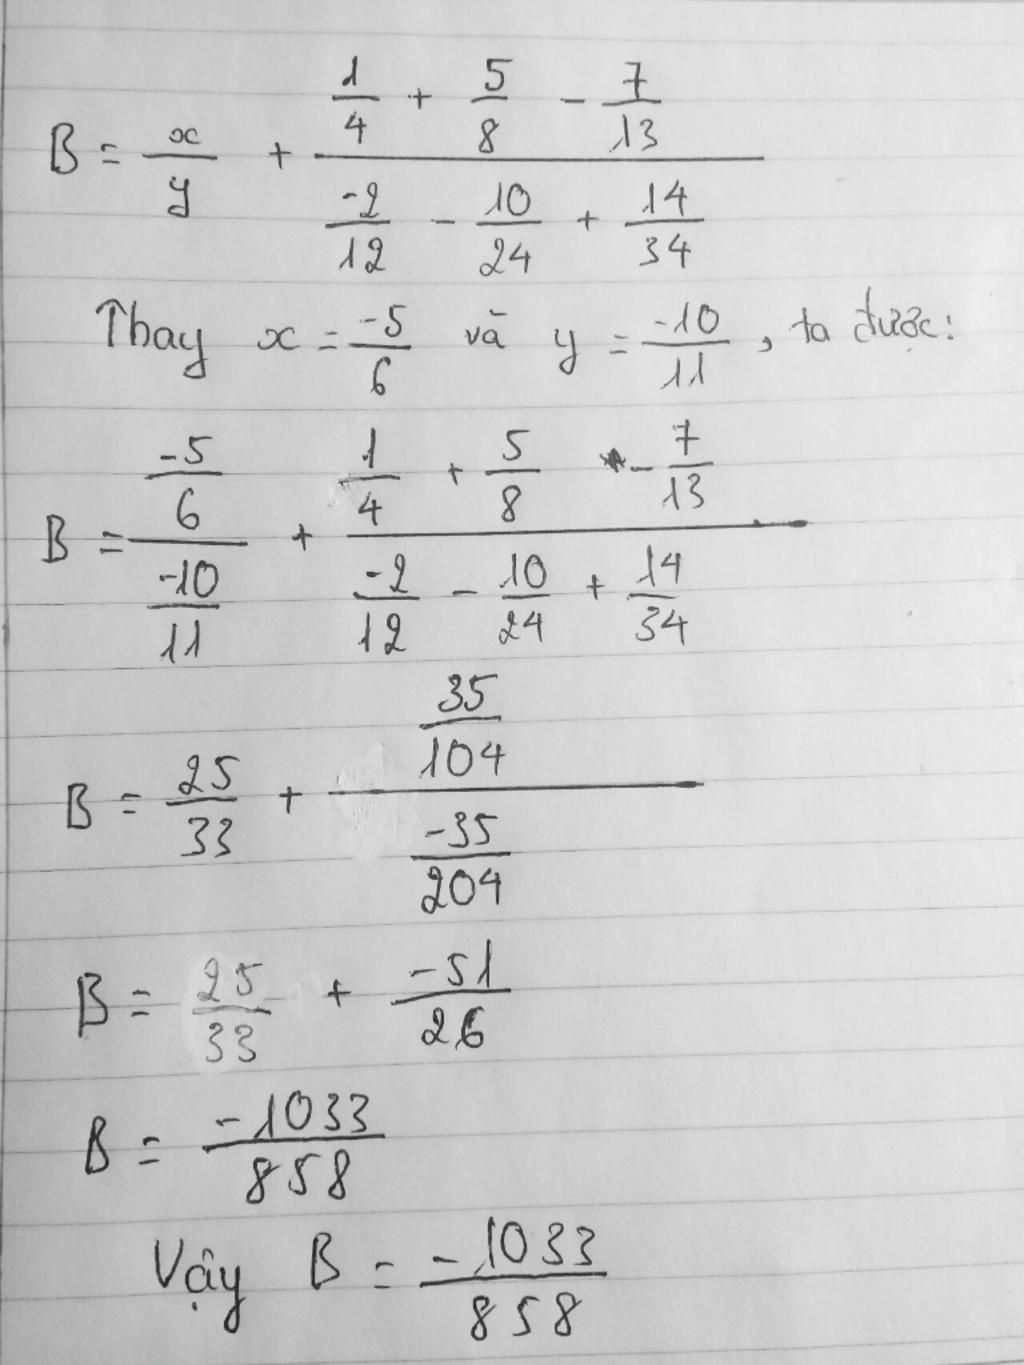 B = x/y + (1/4 + 5/8 - 7/13)/(-2/12 - 10/24 + 14/34)
Thay x = -5/6 và y = -10/11, ta được:
B = (-5/6)/(-10/11) + (1/4 + 5/8 - 7/13)/(-2/12 - 10/24 + 14/34)
B = 25/33 + (35/104)/(-35/204)
B = 25/33 + -51/26
B = -1033/858
Vậy B = -1033/858